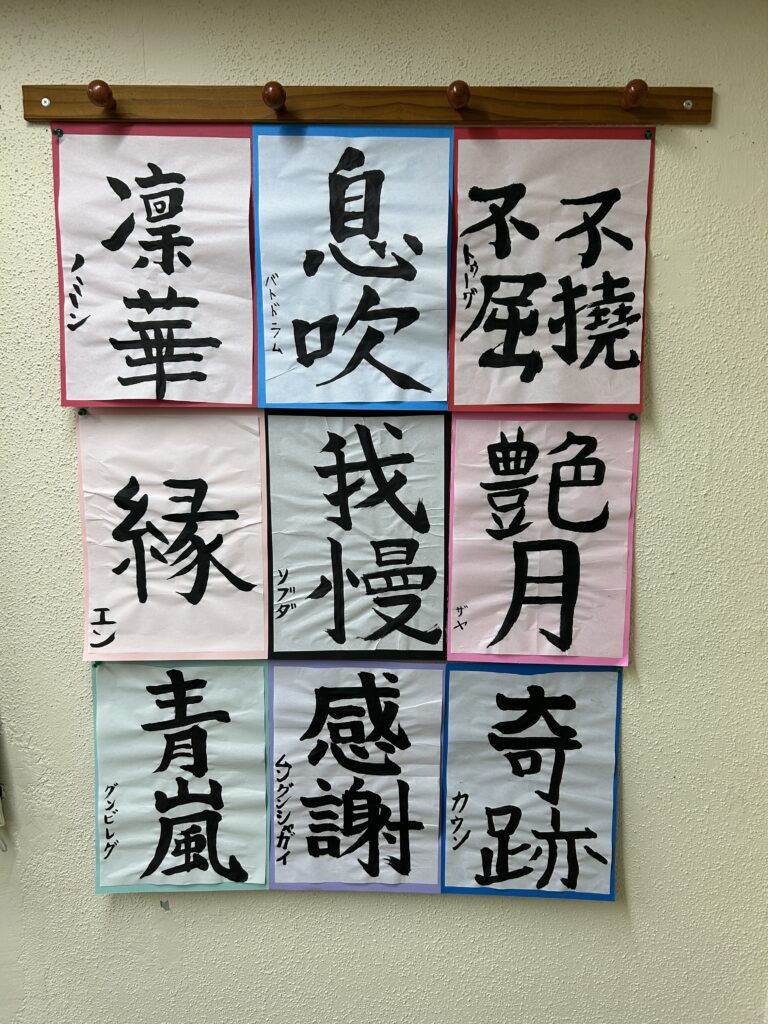 凛華
ノミーン
息吹
バトドラム
不撓
不屈
トゥーグ
縁
エン
我慢
ソブダ
艶月
ザヤ
青嵐
グンビレグ
感謝
ムングンシャガイ
奇跡
カウン